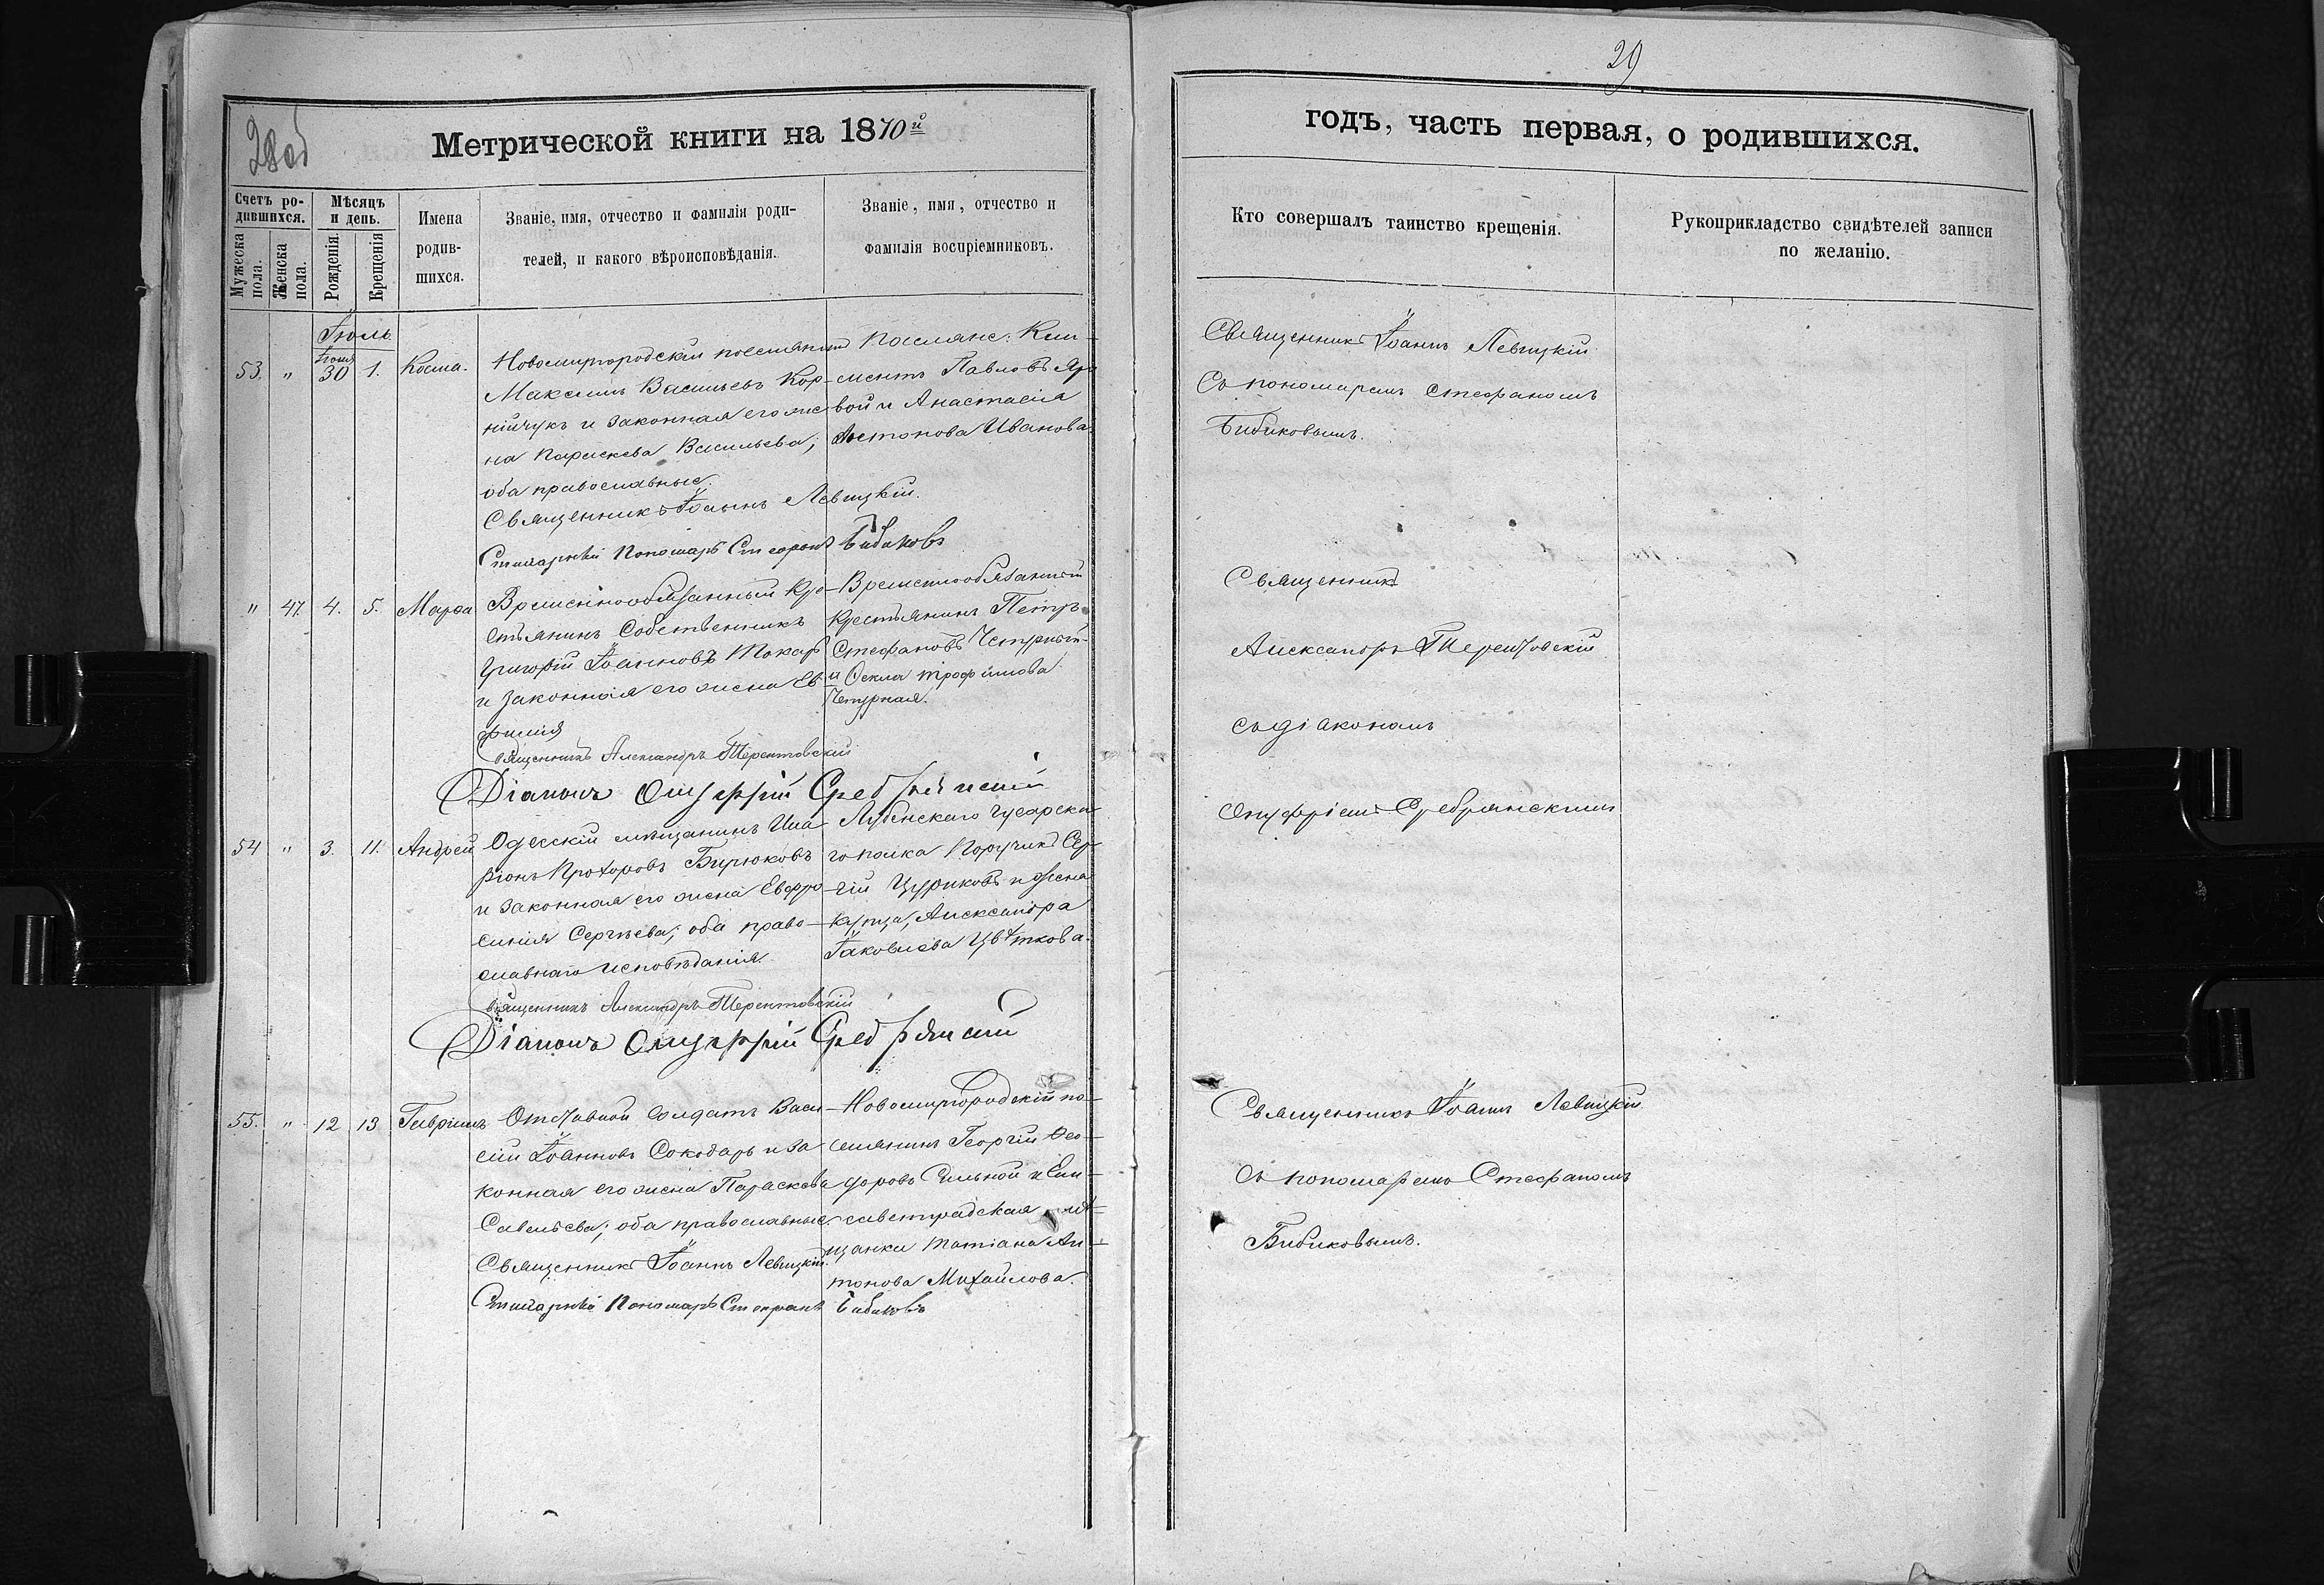 28об
Метрической книги на 1870й
Счетъ родившихся.
Мѣсяцъ и день.
Мужеска пола.
Женска пола.
Рожденія.
Крещенія
Имена родившихся.
Званіе, имя, отчество и фамилія родителей, и какого вѣроисповѣданія.
Званіе, имя, отчество и фамилія воспріемниковъ.
Іюль
53. " Іюня 30 1. Косма.
Новомиргородскій поселянинъ
Максимъ Васильевъ Кор-
нійчукъ и законная его же-
на Параскева Васильева;
оба православные.
Поселяне: Кли-
ментъ Павловъ
и Анастасія
Антонова Иванова.
Священникъ Іоаннъ Левицкій.
Пономарь Стефанъ Бибиковъ
" 47. 4. 5. Марѳа
Временнообязанный Кре-
стьянинъ Собственникъ
Григорій Іоанновъ Токарь
и законная его жена Ев-
фимія
Временнообязанный
Крестьянинъ Петръ
Стефановъ
и Ѳекла Трофимова
Священникъ Александръ Терентовскій
Діаконъ Онуфрій Сребрянскій
54 " 3. 11. Андрей
Одесскій мѣщанинъ Ила-
ріонъ Прохоровъ Бирюковъ
и законная его жена Евфро-
синія Сергѣева; оба право-
славнаго исповѣданія.
Лубенскаго Гусарска-
го полка Поручикъ Сер-
гій Цуриковъ и жена
купца, Александра
Іаковлева Цвѣткова.
Священникъ Александръ Терентовскій
Діаконъ Онуфрій Сребрянскій
55. " 12 13 Гавріилъ
Отставной Солдатъ Васи-
лій Іоанновъ Сокодарь и за-
конная его жена Параскева
Савельева; оба православные.
Новомиргородскій по-
селянинъ Георгій Ѳео-
доровъ Сильной и Ели-
саветградская мѣ-
щанка Татіана Ан-
тонова Михайлова.
Священникъ Іоаннъ Левицкій.
Пономарь Стефанъ Бибиковъ
29
годъ, часть первая, о родившихся.
Кто совершалъ таинство крещенія.
Рукоприкладство свидѣтелей записи
по желанію.
Священникъ Іоаннъ Левицкій
Съ пономаремъ Стефаномъ
Бибиковымъ.
Священникъ
Александръ Терентовскій
съ діакономъ
Онуфріемъ Сребрянскимъ
Священникъ Іоаннъ Левицкій
Съ пономаремъ Стефаномъ
Бибиковымъ.